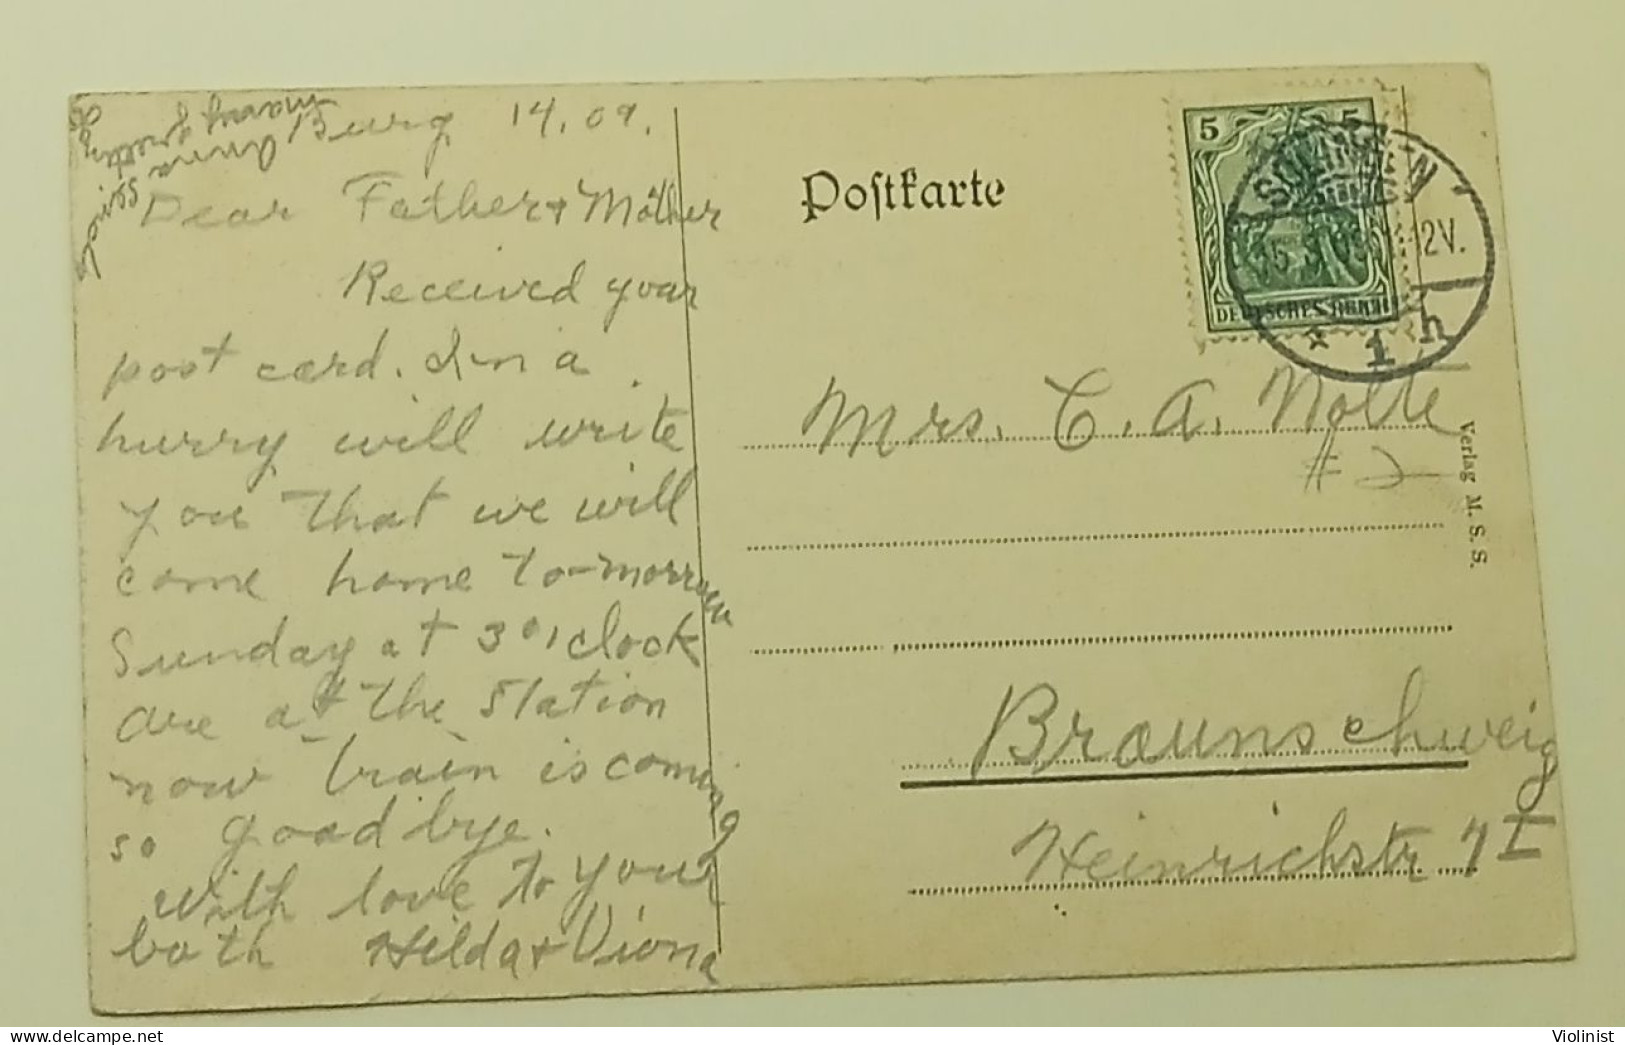 Burg 14.09.
Dear Father + Mother
Received your
post card. In a
hurry will write
you that we will
come home to-morrow
Sunday at 3 o'clock
are at the station
now train is coming
so good bye.
with love to your
both Hilda + Viona
many greeting
Anna
Postkarte
5 5
DEUTSCHES REICH
12V.
* 1 h
Mrs. C. A. Nolte
# 2
Braunschweig
Heinrichstr 7 I
Verlag M. S. S.
Violinist